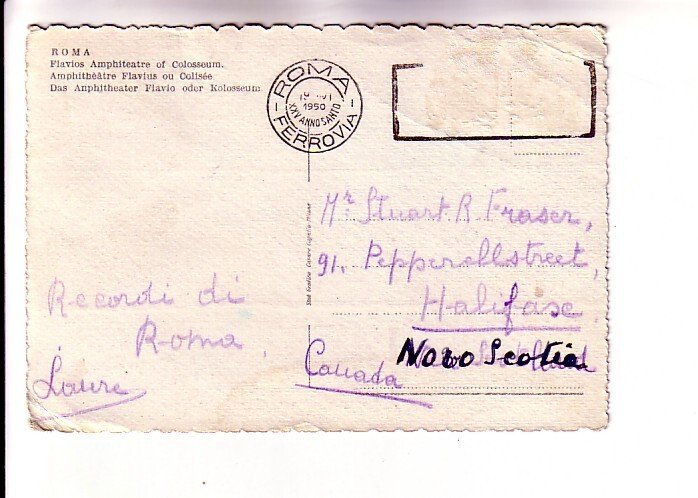 ROMA
Flavios Amphiteatre of Colosseum.
Amphithèâtre Flavius ou Colisée
Das Anphitheater Flavio oder Kolosseum
ROMA
1950
XXV ANNO SANTO
FERROVIA
Mr Stuart R Fraser,
91. Pepperellstreet,
Halifase
Novo Scotia
Canada
Recordi di
Roma,
Laure